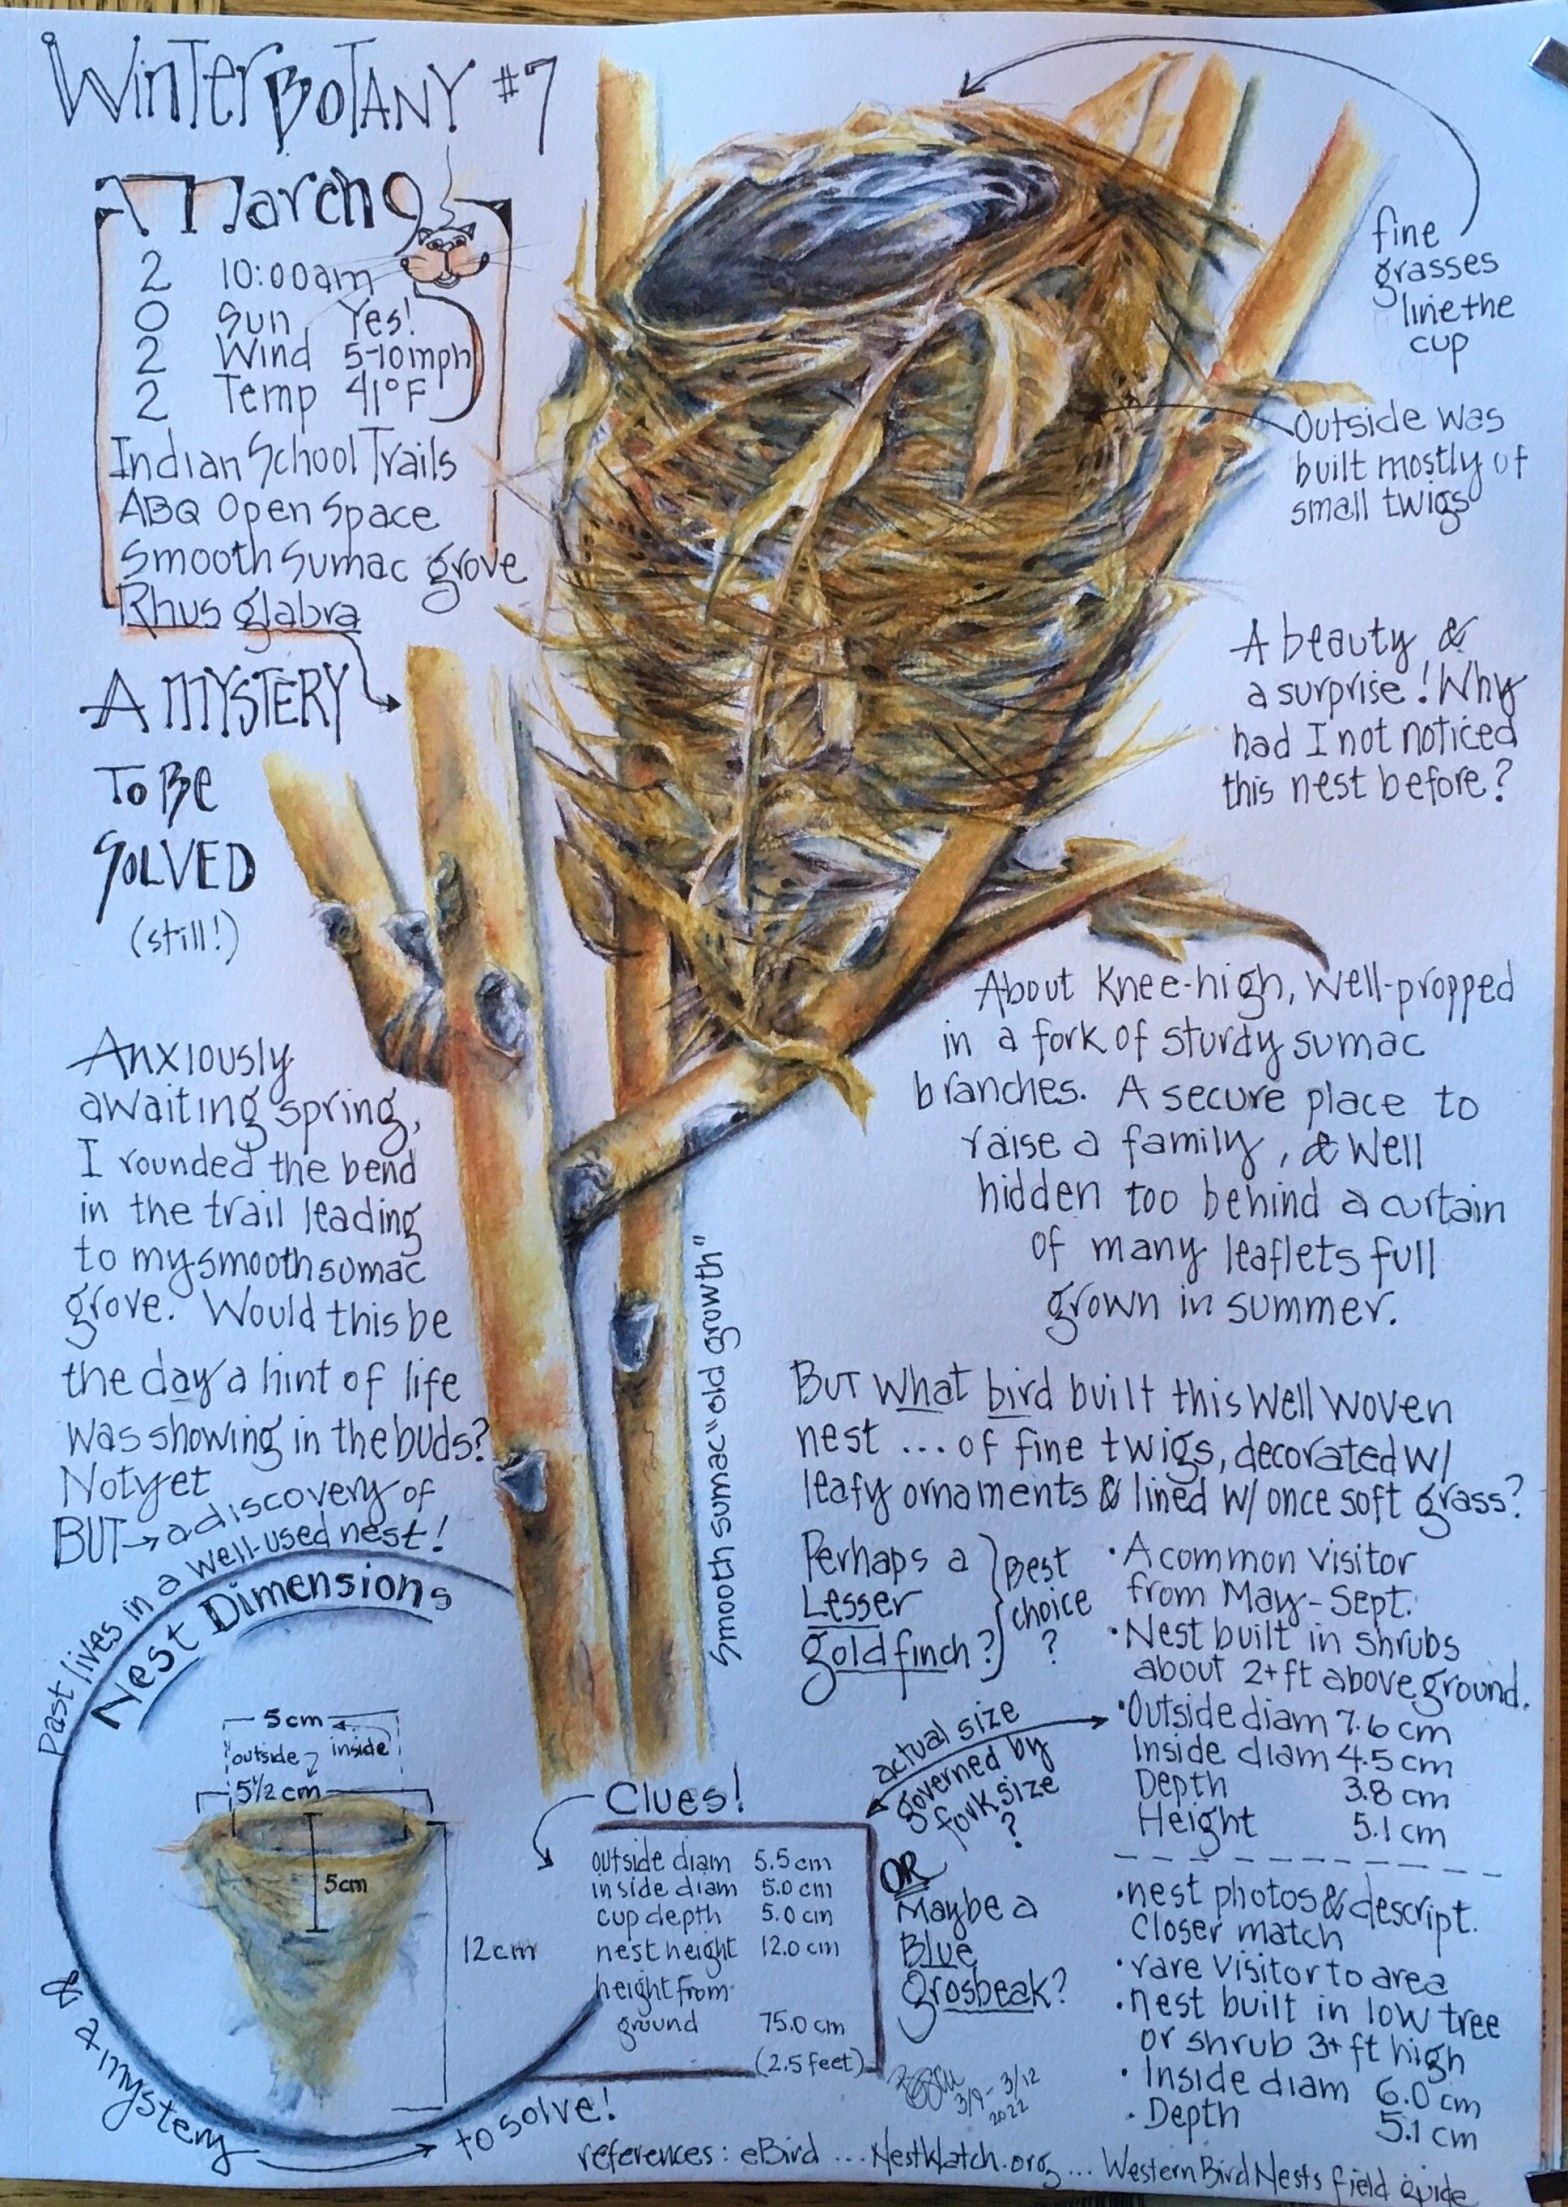 Winter Botany #7
March 9
2 10:00am
0 Sun Yes!
2 Wind 5-10mph
2 Temp 41°F
Indian School Trails
ABQ Open Space
Smooth Sumac grove
Rhus glabra
A MYSTERY
TO BE
SOLVED
(still!)
Anxiously
awaiting spring,
I rounded the bend
in the trail leading
to my smooth sumac
grove. Would this be
the day a hint of life
was showing in the buds?
Not yet
BUT → a discovery of
a well-used nest!
fine
grasses
line the
cup
Outside was
built mostly of
small twigs
A beauty &
a surprise! Why
had I not noticed
this nest before?
About knee-high, well-propped
in a fork of sturdy sumac
branches. A secure place to
raise a family, & well
hidden too behind a curtain
of many leaflets full
grown in summer.
Smooth sumac "old growth"
But what bird built this well woven
nest ... of fine twigs, decorated w/
leafy ornaments & lined w/ once soft grass?
Perhaps a
Lesser
goldfinch?
Best
choice
?
• A common visitor
from May-Sept.
• Nest built in shrubs
about 2+ft above ground.
• Outside diam 7.6 cm
Inside diam 4.5 cm
Depth 3.8 cm
Height 5.1 cm
actual size
governed by
fork size
?
OR
Maybe a
Blue
grosbeak?
• nest photos & descript.
closer match
• rare visitor to area
• nest built in low tree
or shrub 3+ ft high
• Inside diam 6.0 cm
• Depth 5.1 cm
Past lives in
& a mystery
to solve!
Nest Dimensions
5cm
outside inside
5½cm
5cm
12cm
Clues!
outside diam 5.5cm
inside diam 5.0 cm
cup depth 5.0 cm
nest height 12.0 cm
height from
ground 75.0 cm
(2.5 feet)
3/9-3/12
2022
references: eBird ... NestWatch.org ... Western Bird Nests field guide